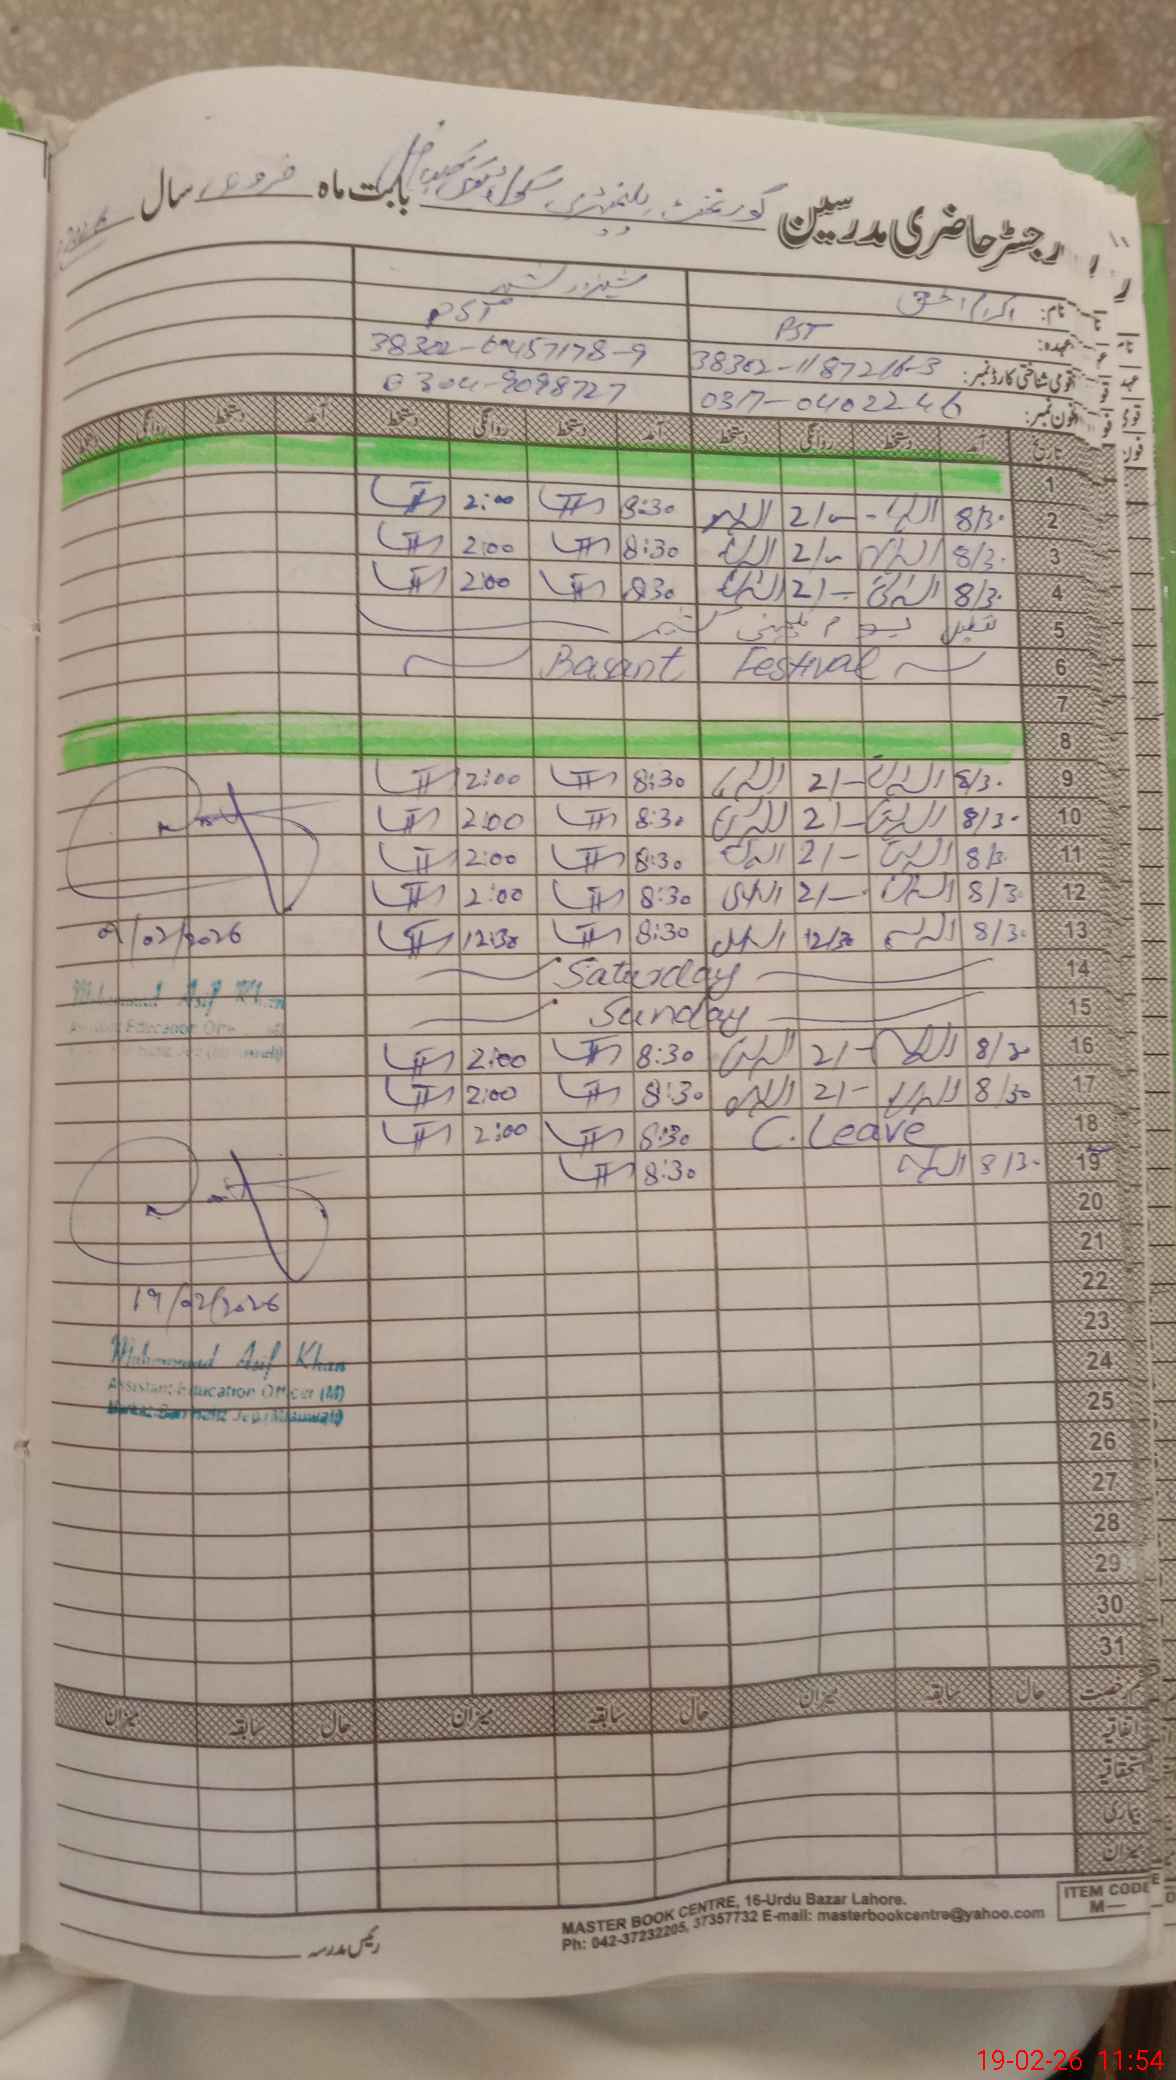 رجسٹر حاضری مدرسین گورنمنٹ ایلیمنٹری سکول بابت ماہ فروری سال
نام: اکرام الحق
عہدہ: PST PST
قومی شناختی کارڈ نمبر: 38302-1187216-3 38302-6457178-9
فون نمبر: 0317-0402246 0304-9098727
تاریخ آمد دستخط روانگی دستخط آمد دستخط روانگی دستخط آمد دستخط روانگی دستخط
1
2 8/30 2/- 8:30 2:00
3 8/30 2/- 8:30 2:00
4 8/30 2/- 8:30 2:00
5 تعطیل یوم یکجہتی کشمیر
6 Basant Festival
7
8
9 8/30 2/- 8:30 2:00
10 8/30 2/- 8:30 2:00
11 8/30 2/- 8:30 2:00
12 8/30 2/- 8:30 2:00
13 8/30 12/30 8:30 12:30
09/02/2026
14 Saturday
Muhammad Asif Khan
15 Sunday
16 8/30 2/- 8:30 2:00
17 8/30 2/- 8:30 2:00
18 C. Leave 8:30 2:00
19 8/30 8:30
20
21
22
19/02/2026
23
24
Muhammad Asif Khan
Assistant Education Officer (M)
25
26
27
28
29
30
31
رخصت حال سابقہ میزان حال سابقہ میزان حال سابقہ میزان
اتفاقیہ
استحقاقیہ
بیماری
میزان
رئیس مدرسہ
MASTER BOOK CENTRE, 16-Urdu Bazar Lahore.
Ph: 042-37232205, 37357732 E-mail: masterbookcentre@yahoo.com
ITEM CODE
M—
19-02-26 11:54